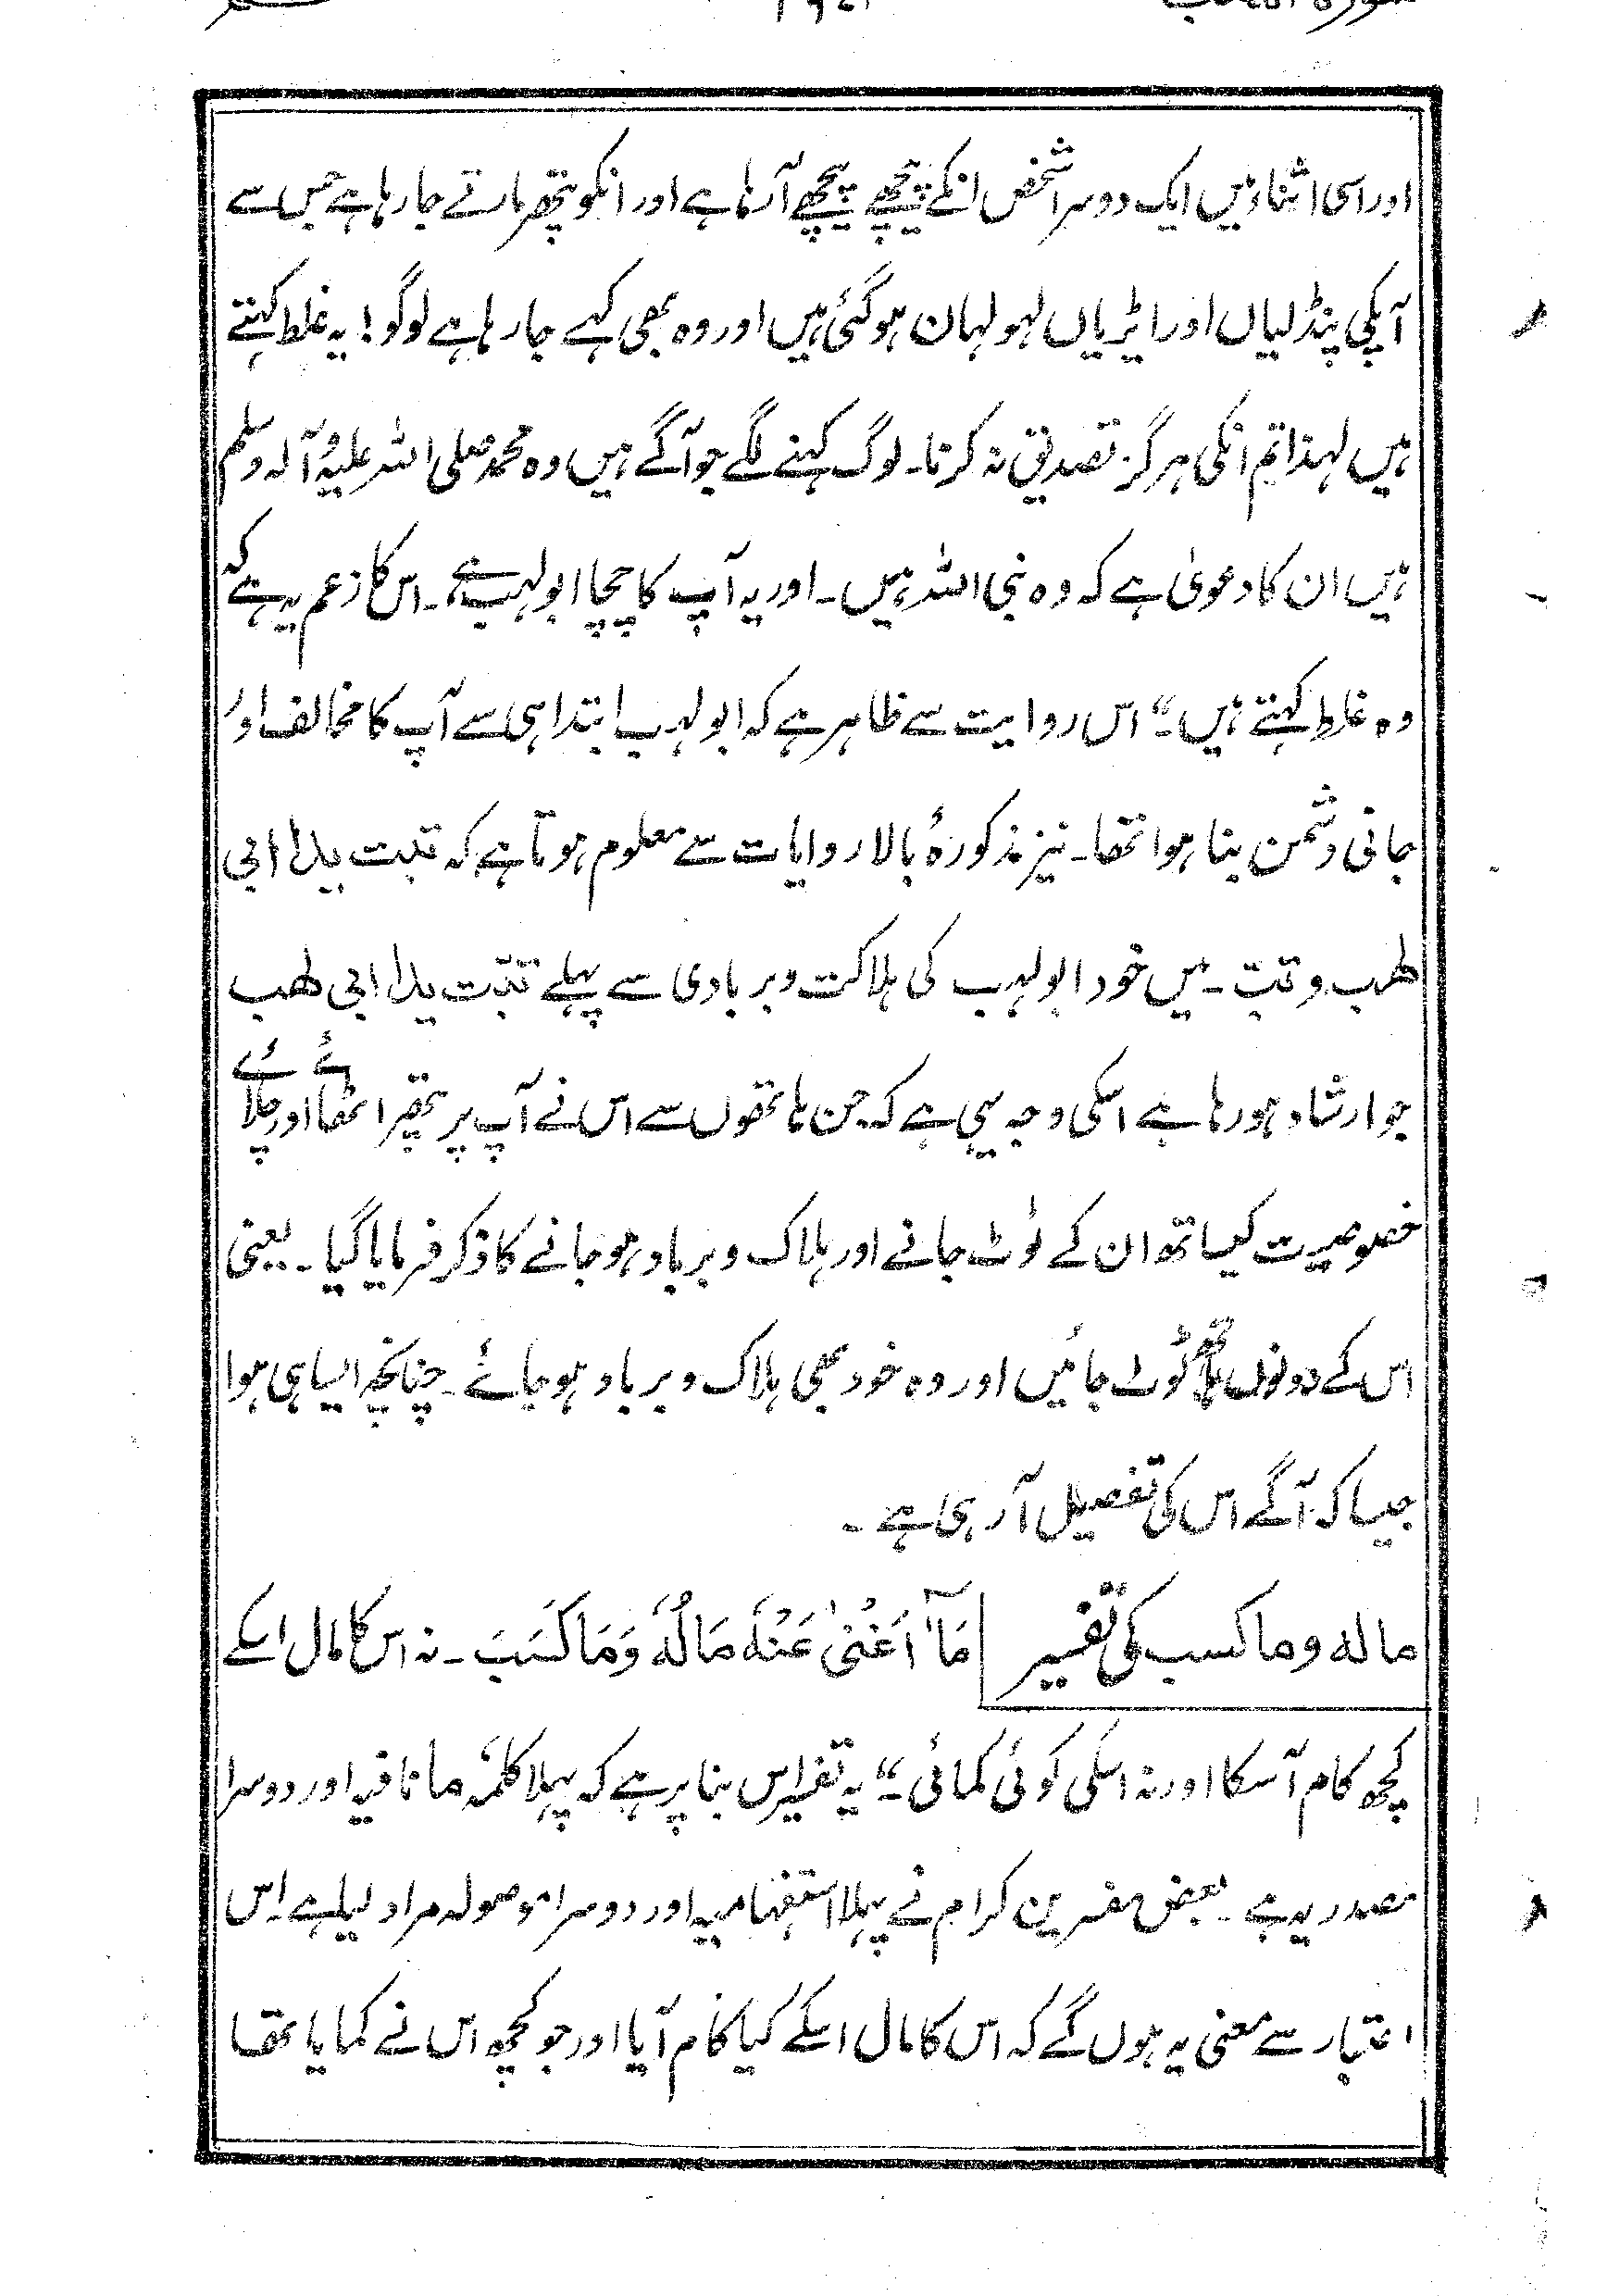 اور اسی اثناء میں ایک دوسرا شخص انکے پیچھے پیچھے آرہا ہے اور انکو پتھر مارتے جا رہا ہے جس سے
آپکی پنڈلیاں اور ایڑیاں لہولہان ہوگئی ہیں اور وہ بھی کہے جا رہا ہے لوگو! یہ غلط کہتے
ہیں لہذا تم انکی ہرگز تصدیق نہ کرنا۔ لوگ کہنے لگے جو آگے ہیں وہ محمد صلی اللہ علیہ وآلہ وسلم
ہیں ان کا دعویٰ ہے کہ وہ نبی اللہ ہیں۔ اور یہ آپ کا چچا ابولہب ہے۔ اس کا زعم یہ ہے کہ
وہ غلط کہتے ہیں۔“ اس روایت سے ظاہر ہے کہ ابولہب ابتدا ہی سے آپ کا مخالف اور
جانی دشمن بنا ہوا تھا۔ نیز مذکورہ بالا روایات سے معلوم ہوتا ہے کہ تبت یدا ابی
لھب و تب۔ میں خود ابولہب کی ہلاکت و بربادی سے پہلے تبّت یدا ابی لھب
جو ارشاد ہو رہا ہے اسکی وجہ یہی ہے کہ جن ہاتھوں سے اس نے آپ پر پتھر اٹھائے اور چلائے
خصوصیت کیساتھ ان کے ٹوٹ جانے اور ہلاک و برباد ہو جانے کا ذکر فرمایا گیا۔ یعنی
اس کے دونوں ہاتھ ٹوٹ جائیں اور وہ خود بھی ہلاک و برباد ہو جائے۔ چنانچہ ایسا ہی ہوا
جیسا کہ آگے اس کی تفصیل آرہی ہے۔
ماله وما کسب کی تفسیر مَآ اَغْنٰی عَنْهُ مَالُهٗ وَمَا کَسَبَ۔ نہ اس کا مال اسکے
کچھ کام آسکا اور نہ اسکی کوئی کمائی۔“ یہ تفسیر اس بنا پر ہے کہ پہلا کلمہ ما نافیہ اور دوسرا
مصدریہ ہے۔ بعض مفسرین کرام نے پہلا استفہامیہ اور دوسرا موصولہ مراد لیا ہے اس
اعتبار سے معنی یہ ہوں گے کہ اس کا مال اسکے کیا کام آیا اور جو کچھ اس نے کمایا تھا